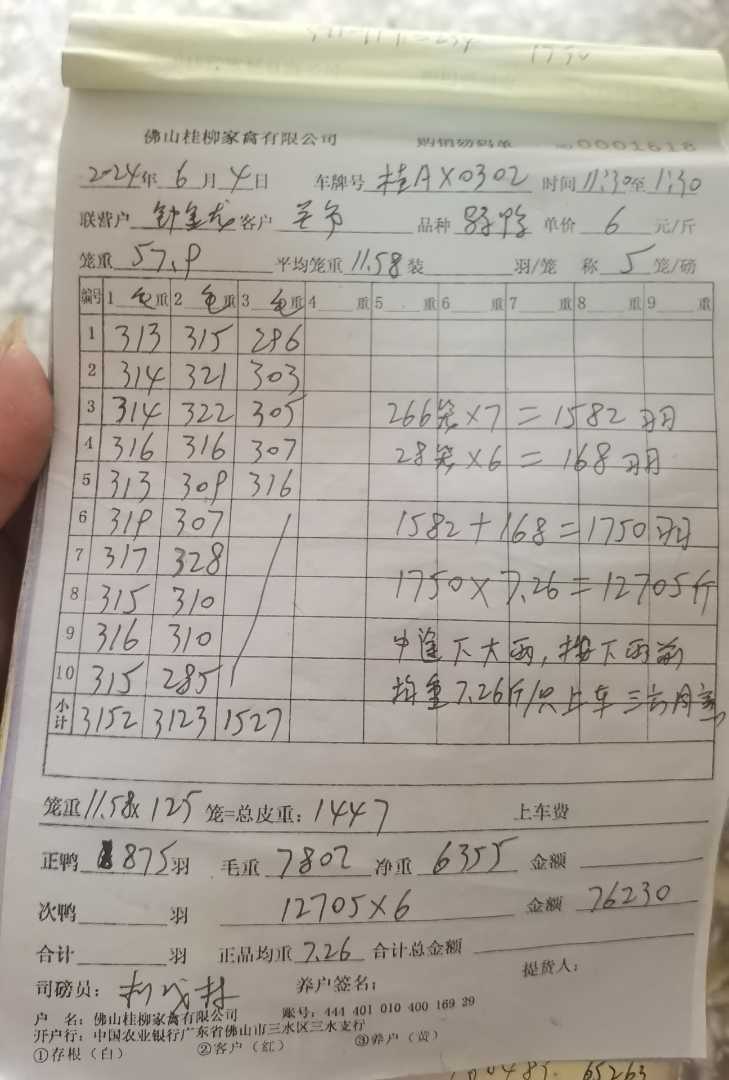 佛山桂柳家禽有限公司 购销过码单 0001618
2024年 6 月 4 日 车牌号 桂AX0302 时间 11:30至 1:30
联营户 钟金龙 客户 品种 单价 6 元/斤
笼重 57.9 平均笼重 11.58 装 羽/笼 称 5 笼/磅
编号 1 毛重 2 毛重 3 毛重 4 重 5 重 6 重 7 重 8 重 9 重
1 313 315 286
2 314 321 303
3 314 322 305 266笼×7=1582羽
4 316 316 307 28笼×6=168羽
5 313 309 316
6 319 307 1582+168=1750羽
7 317 328
8 315 310 1750×7.26=12705斤
9 316 310 中途下大雨,按下雨前
10 315 285 称重7.26斤/只上车三方同意
小计 3152 3123 1527
笼重 11.58× 125 笼=总皮重: 1447 上车费
正鸭 875 羽 毛重 7802 净重 6355 金额
次鸭 羽 12705×6 金额 76230
合计 羽 正品均重 7.26 合计总金额
司磅员: 养户签名: 提货人:
户 名: 佛山桂柳家禽有限公司 账号: 444 401 010 400 169 29
开户行: 中国农业银行广东省佛山市三水区三水支行
①存根(白) ②客户(红) ③养户(黄)
65263